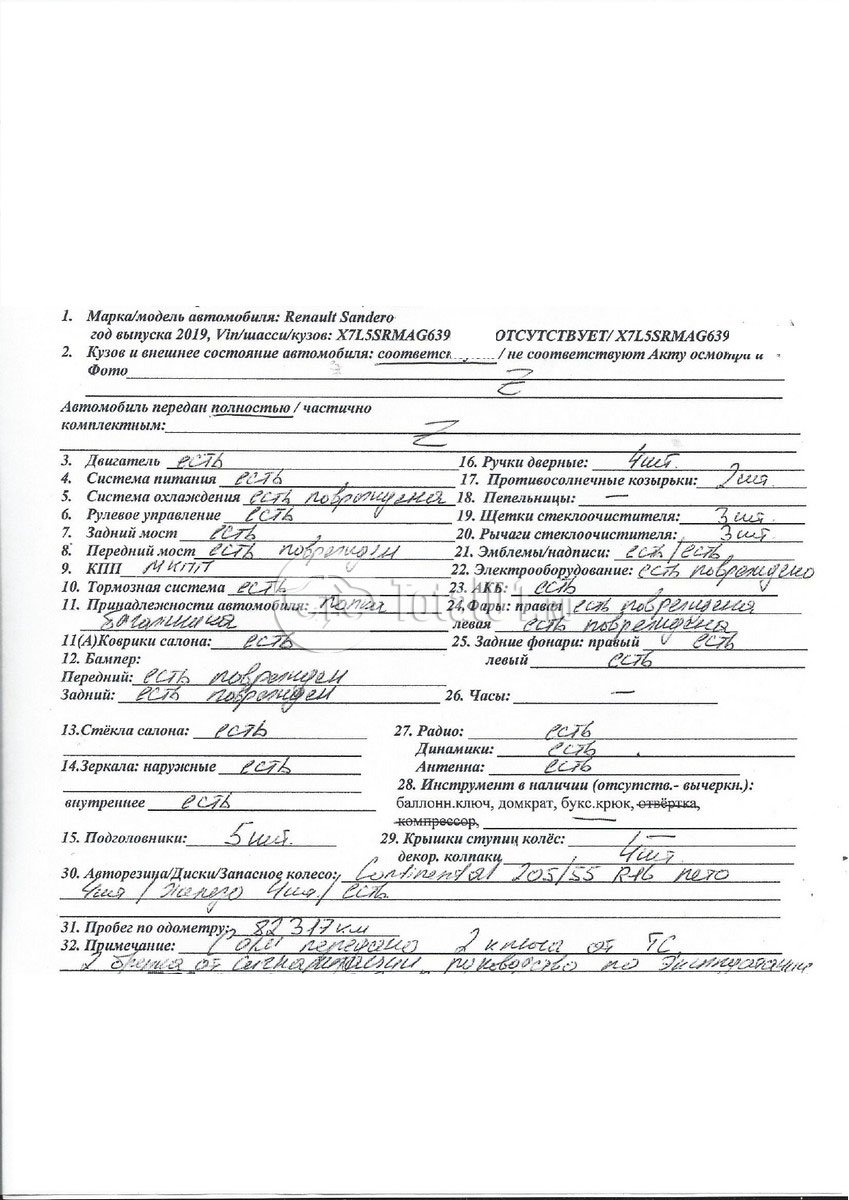 1. Марка/модель автомобиля: Renault Sandero
год выпуска 2019, Vin/шасси/кузов: X7L5SRMAG639 ОТСУТСТВУЕТ/ X7L5SRMAG639
2. Кузов и внешнее состояние автомобиля: соответст / не соответствуют Акту осмотра и
Фото
Автомобиль передан полностью / частично
комплектным:
3. Двигатель есть 16. Ручки дверные: 4шт.
4. Система питания есть 17. Противосолнечные козырьки: 2шт
5. Система охлаждения есть повреждена 18. Пепельницы: —
6. Рулевое управление есть 19. Щетки стеклоочистителя: 3шт
7. Задний мост есть 20. Рычаги стеклоочистителя: 3шт
8. Передний мост есть поврежден 21. Эмблемы/надписи: есть/есть
9. КПП МКПП 22. Электрооборудование: есть повреждено
10. Тормозная система есть 23. АКБ: есть
11. Принадлежности автомобиля: полка 24.Фары: правая есть повреждена
багажника левая есть повреждена
11(А)Коврики салона: есть 25. Задние фонари: правый есть
12. Бампер: левый есть
Передний: есть поврежден
Задний: есть поврежден 26. Часы: —
13.Стёкла салона: есть 27. Радио: есть
Динамики: есть
14.Зеркала: наружные есть Антенна: есть
28. Инструмент в наличии (отсутств.- вычеркн.):
внутреннее есть баллонн.ключ, домкрат, букс.крюк, отвёртка,
компрессор, —
15. Подголовники: 5шт. 29. Крышки ступиц колёс: —
декор. колпаки 4шт
30. Авторезина/Диски/Запасное колесо: Continental 205/55 R16 лето
4шт / Железо 4шт / есть
31. Пробег по одометру: 82317км
32. Примечание: передано 2 ключа от ТС
2 брелка от сигнализации, руководство по эксплуатации
Total01.ru